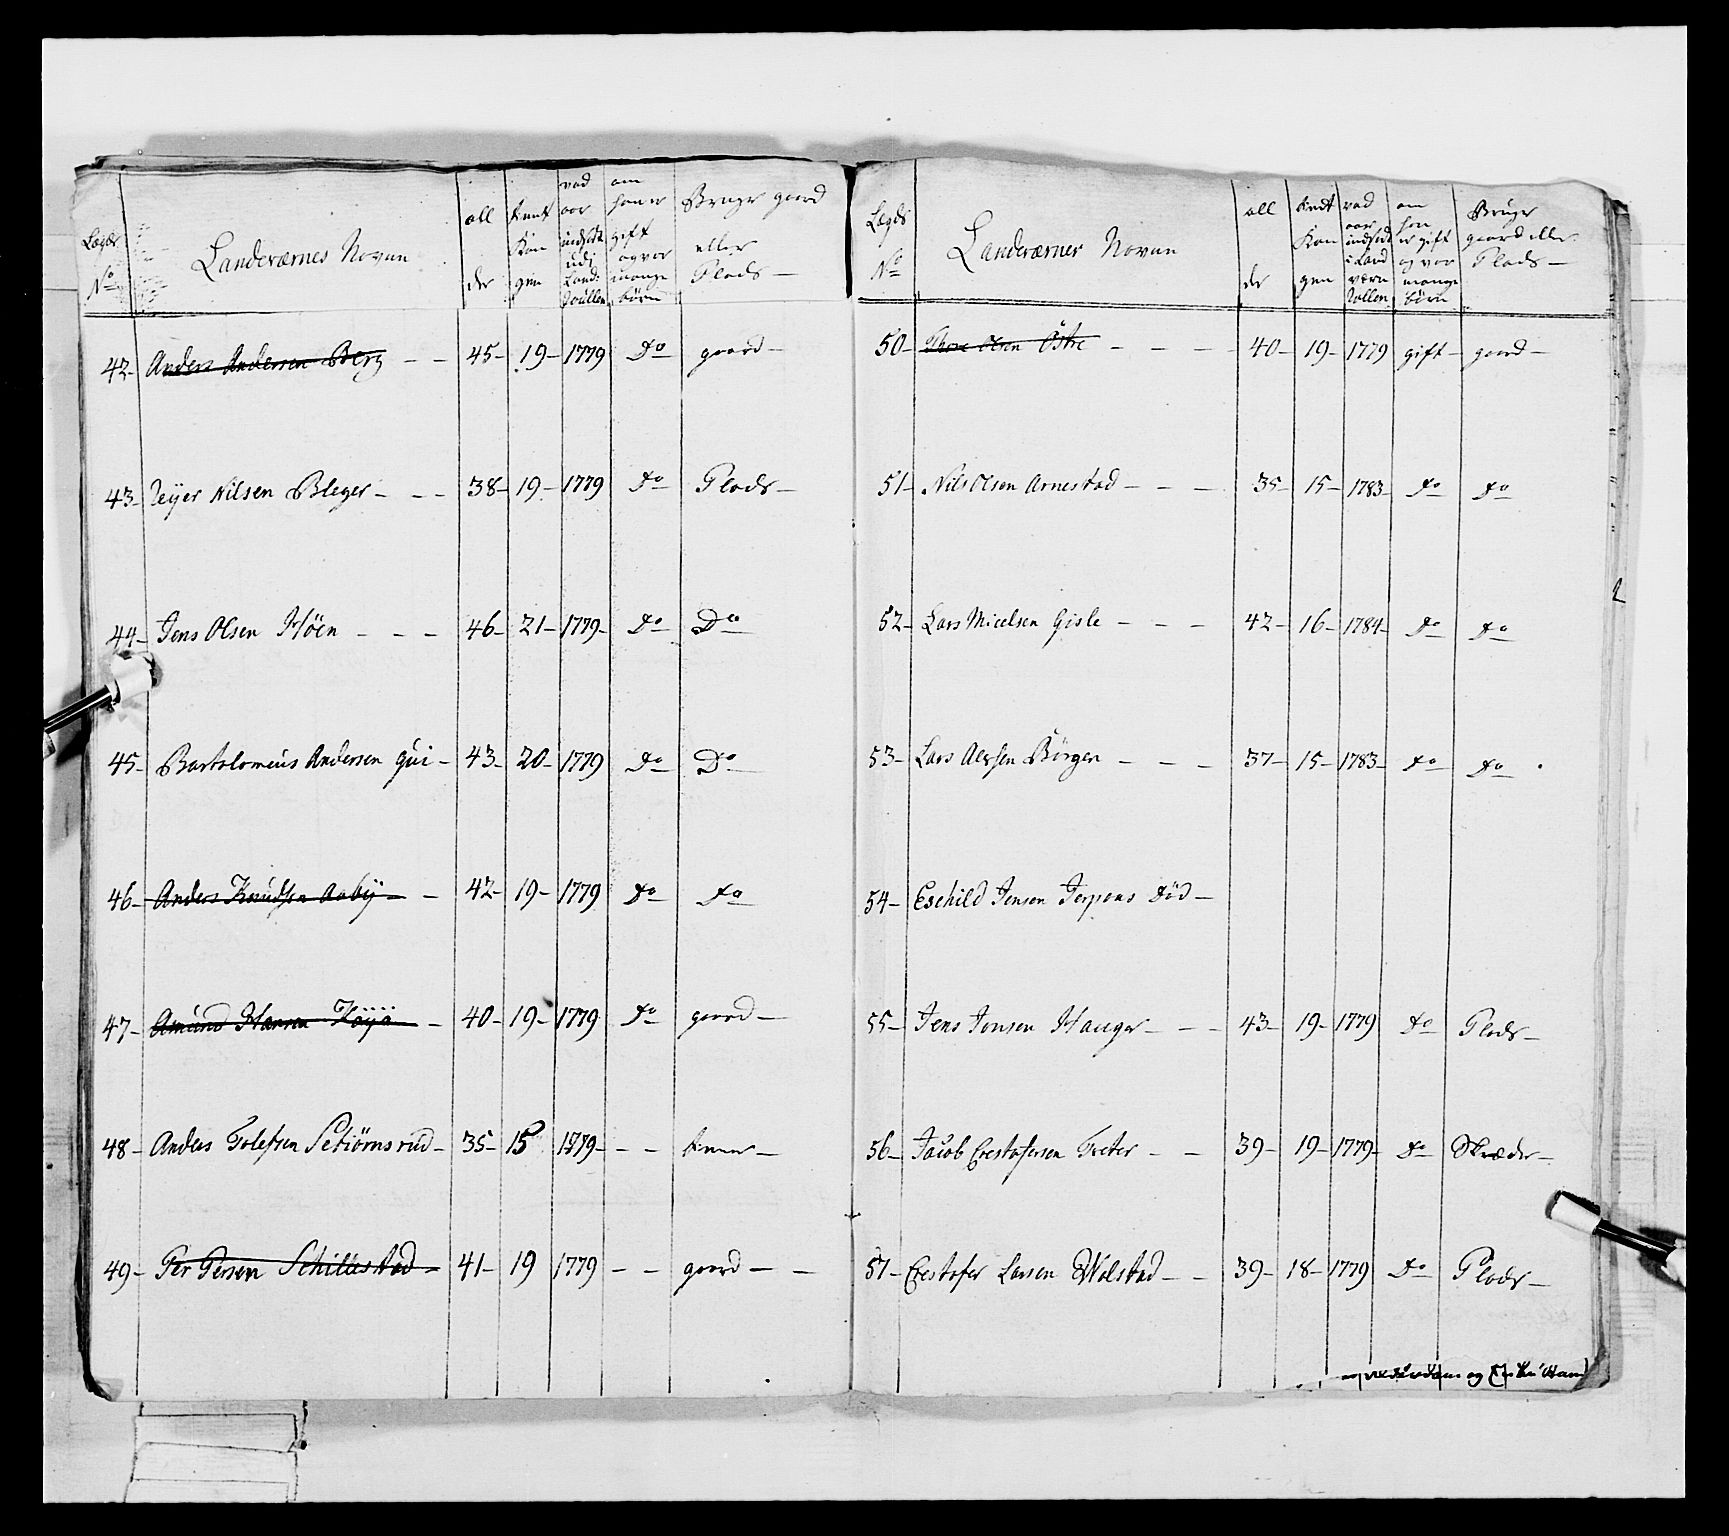 Lægds No Landeværnes Navn all der tient Kongen vad aar indsadt udi Land: Roullen om han er gift og vor mange børn Bruger gaard eller Plads —
42 – Anders Andersen Berg – – 45 – 19 – 1779 Do gaard –
43 – Reyer Nilsen Bleger – – – 38 – 19 – 1779 Do Plads –
44 – Jens Olsen Høen – – – 46 – 21 – 1779 – Do Do
45 – Bartolomeus Andersen Gui – 43 – 20 – 1779 Do Do
46 – Anders Knudsen Aabÿ – – 42 – 19 – 1779 Do Do
47 – Amund Hansen – 40 – 19 – 1779 Do gaard –
48 – Anders Tolefsen Setiørnsrud – 35 – 15 1779 – – –
49 – Per Persen Schillestad – 41 – 19 1779 – – gaard – –
Lægds No Landeværnes Navn all der tient Kongen vad aar indsadt i Land værn Rollen om han er gift og vor mange børn Bruger gaard eller Plads —
50 – Thore Olsen Østre – – – – 40 – 19 – 1779 gift – gaard –
51 – Nils Olsen Arnestad – – – 35 – 15 – 1783 – Do Do
52 – Lars Micelsen Gisle – – – 42 – 16 – 1784 – Do Do
53 – Lars Børgen – – – 37 – 15 – 1783 – Do Do
54 – Eschild Jensen Jerpaas Død –
55 – Jens Jonsen Hauger – – – 43 – 19 – 1779 Do Plads –
56 – Jacob Crestofersen Treter – – 39 – 19 – 1779 – Do Skræder –
57 – Crestofer Larsen Wolstad – – 39 – 18 – 1779 Do Plads –